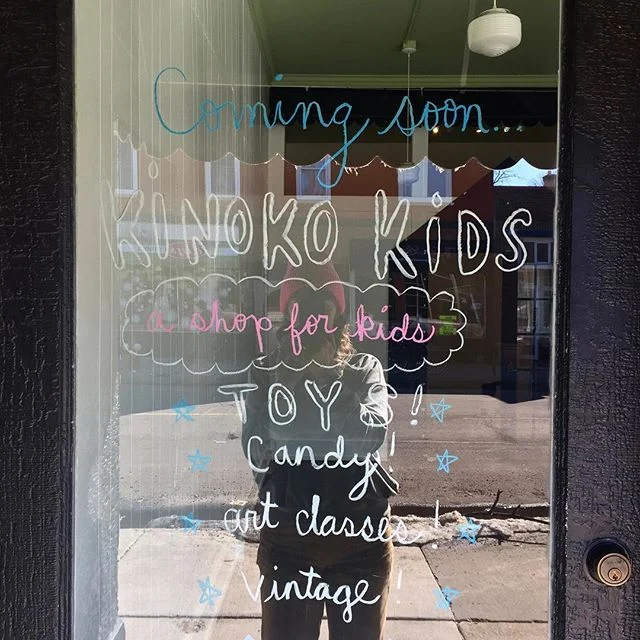 Coming soon...
KiNOKO KiDS
a shop for kids
TOYS!
Candy!
art classes!
Vintage!